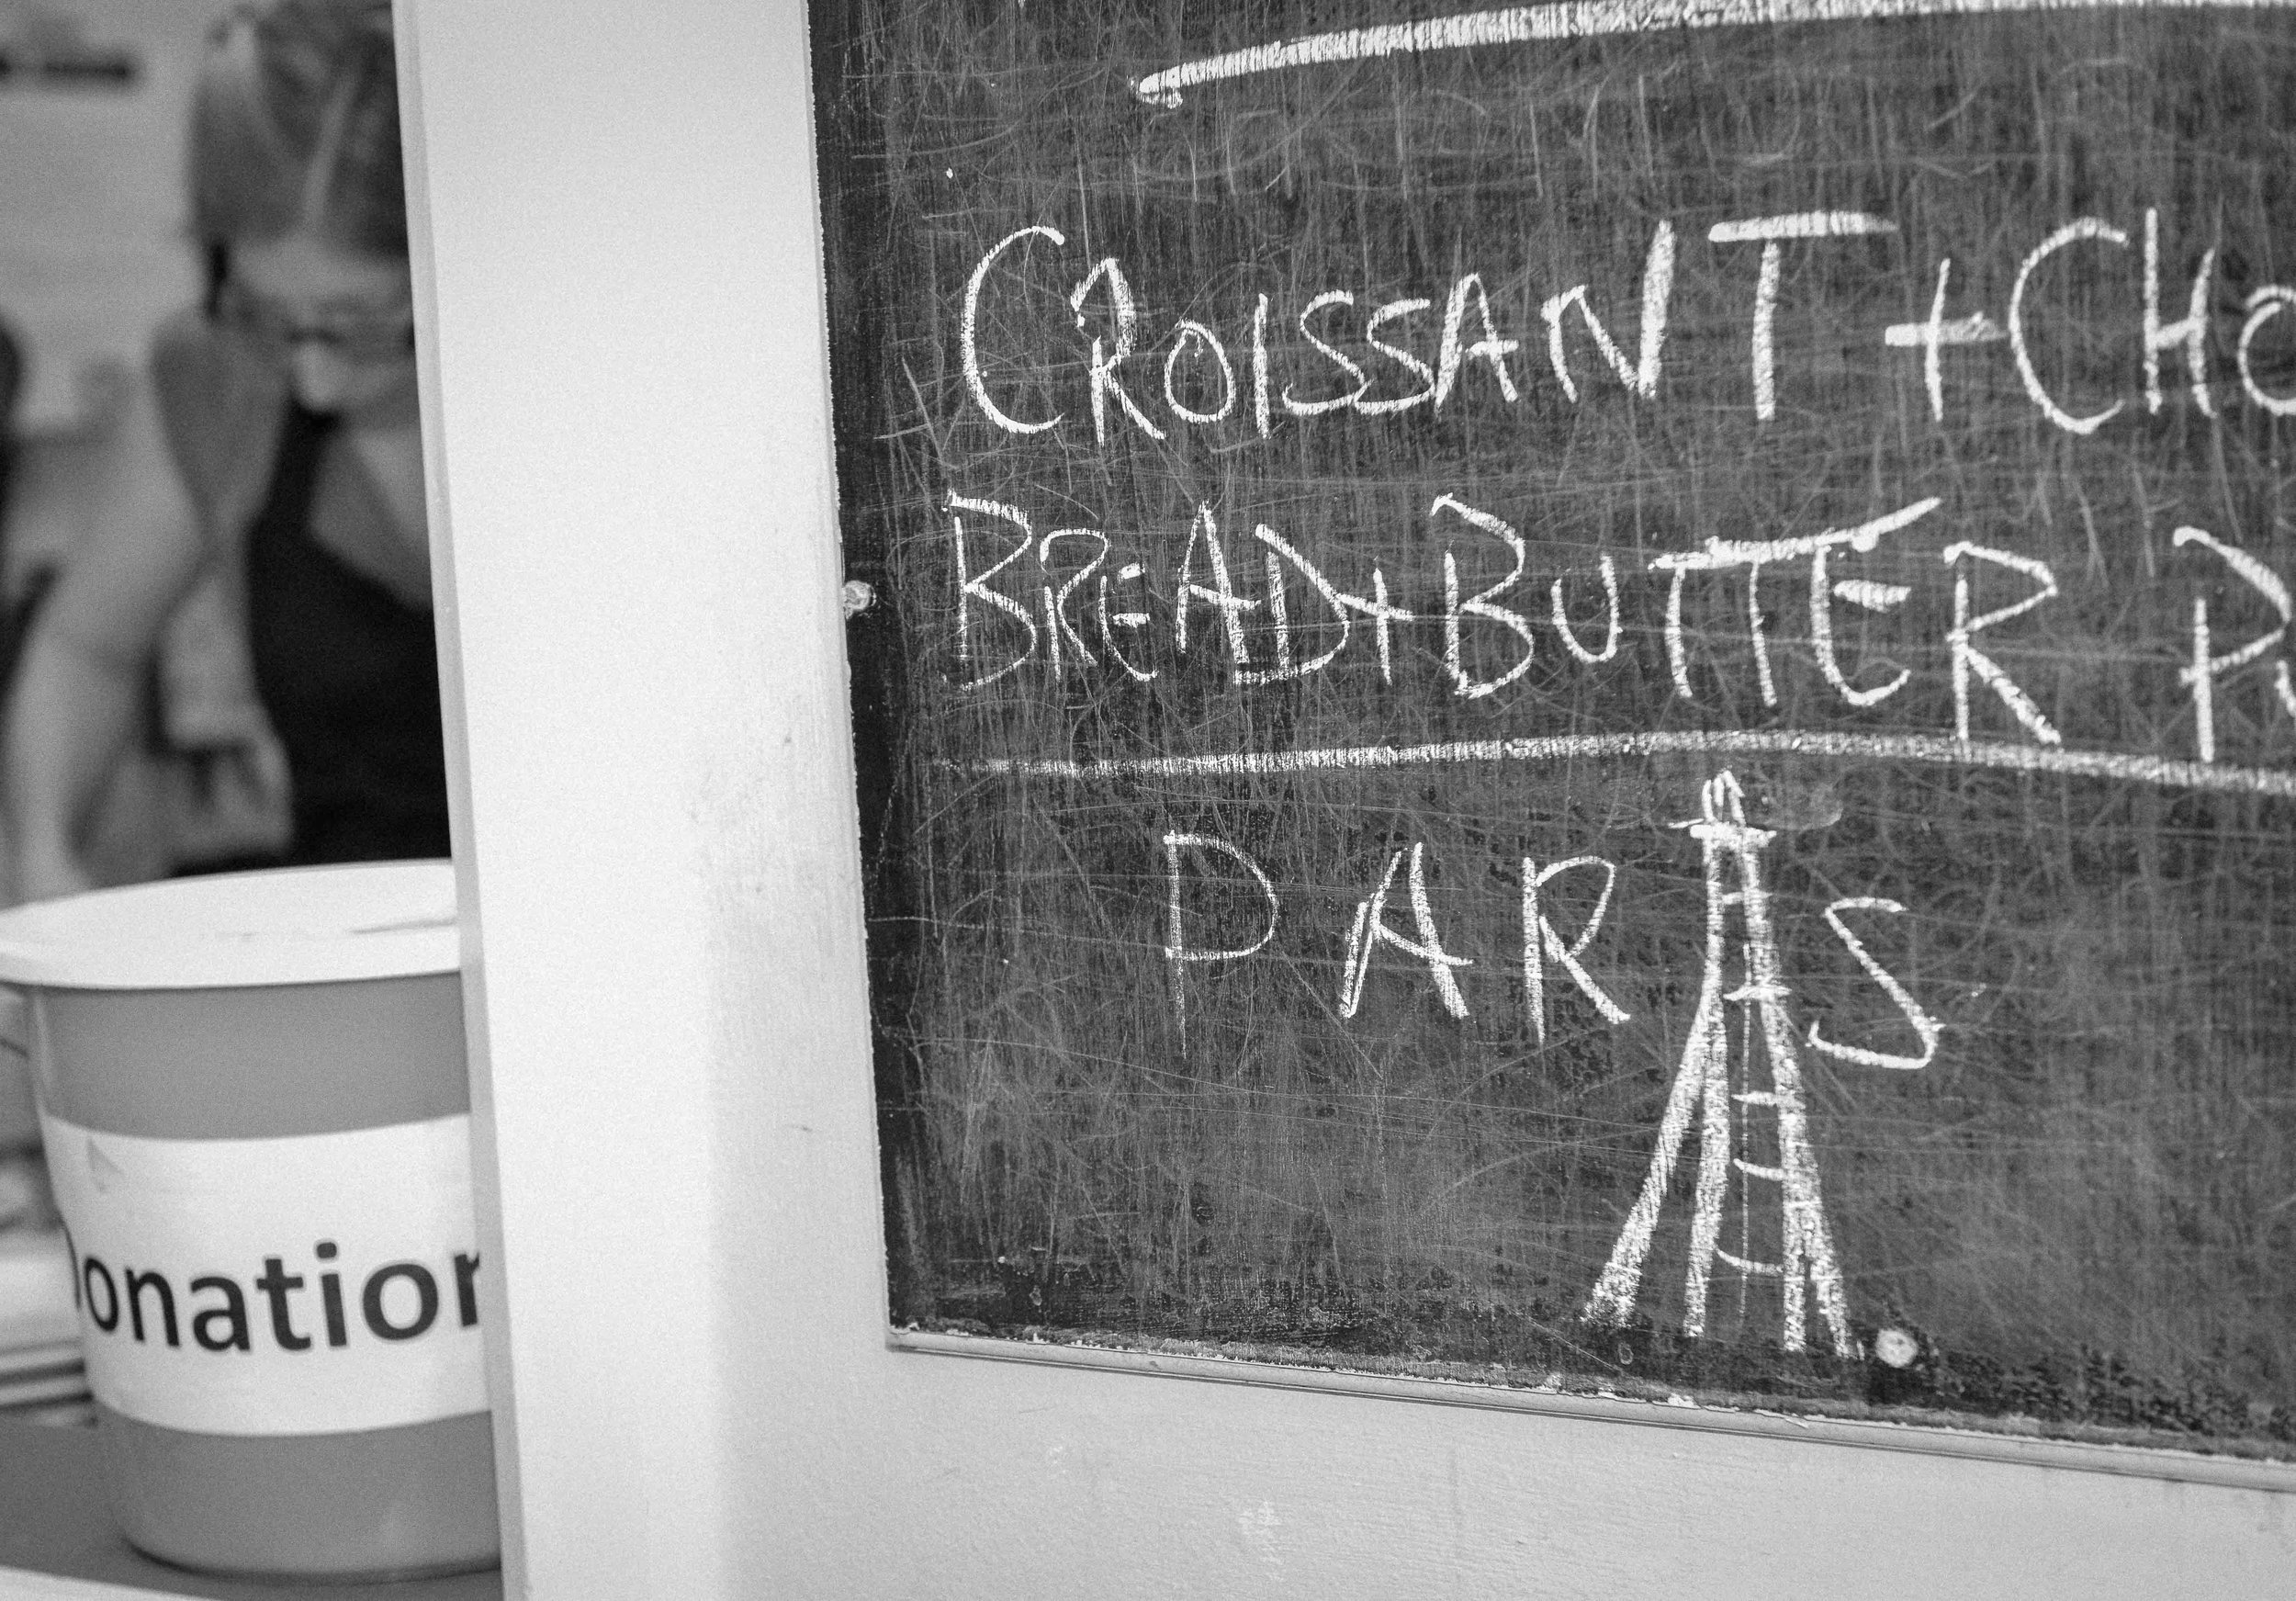 CROISSANT + CHO
BREAD + BUTTER P
PARIS
Donation